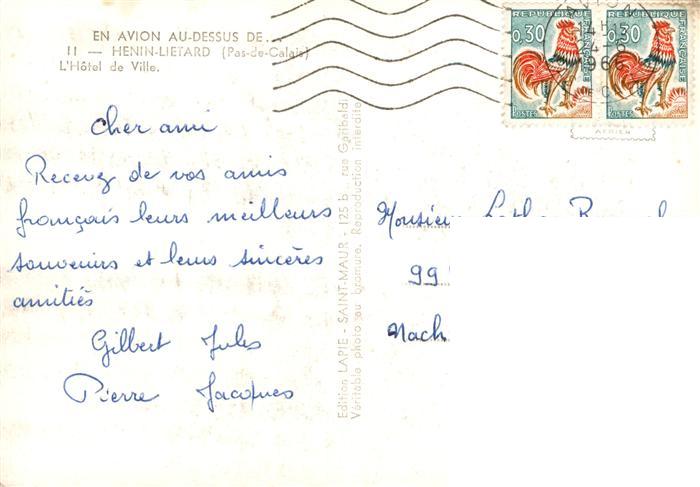 EN AVION AU-DESSUS DE...
11 — HENIN-LIETARD (Pas-de-Calais)
L'Hôtel de Ville.
Cher ami
Recevez de vos amis
français leurs meilleurs
souvenirs et leurs sincères
amitiés
Gilbert Jules
Pierre Jacques
Edition LAPIE - SAINT-MAUR - 125 b... rue Garibaldi
Véritable photo au bromure. Reproduction interdite
REPUBLIQUE FRANÇAISE
0,30
POSTES
REPUBLIQUE FRANÇAISE
0,30
POSTES
1966
AERIEN
Monsieur
99
Nach